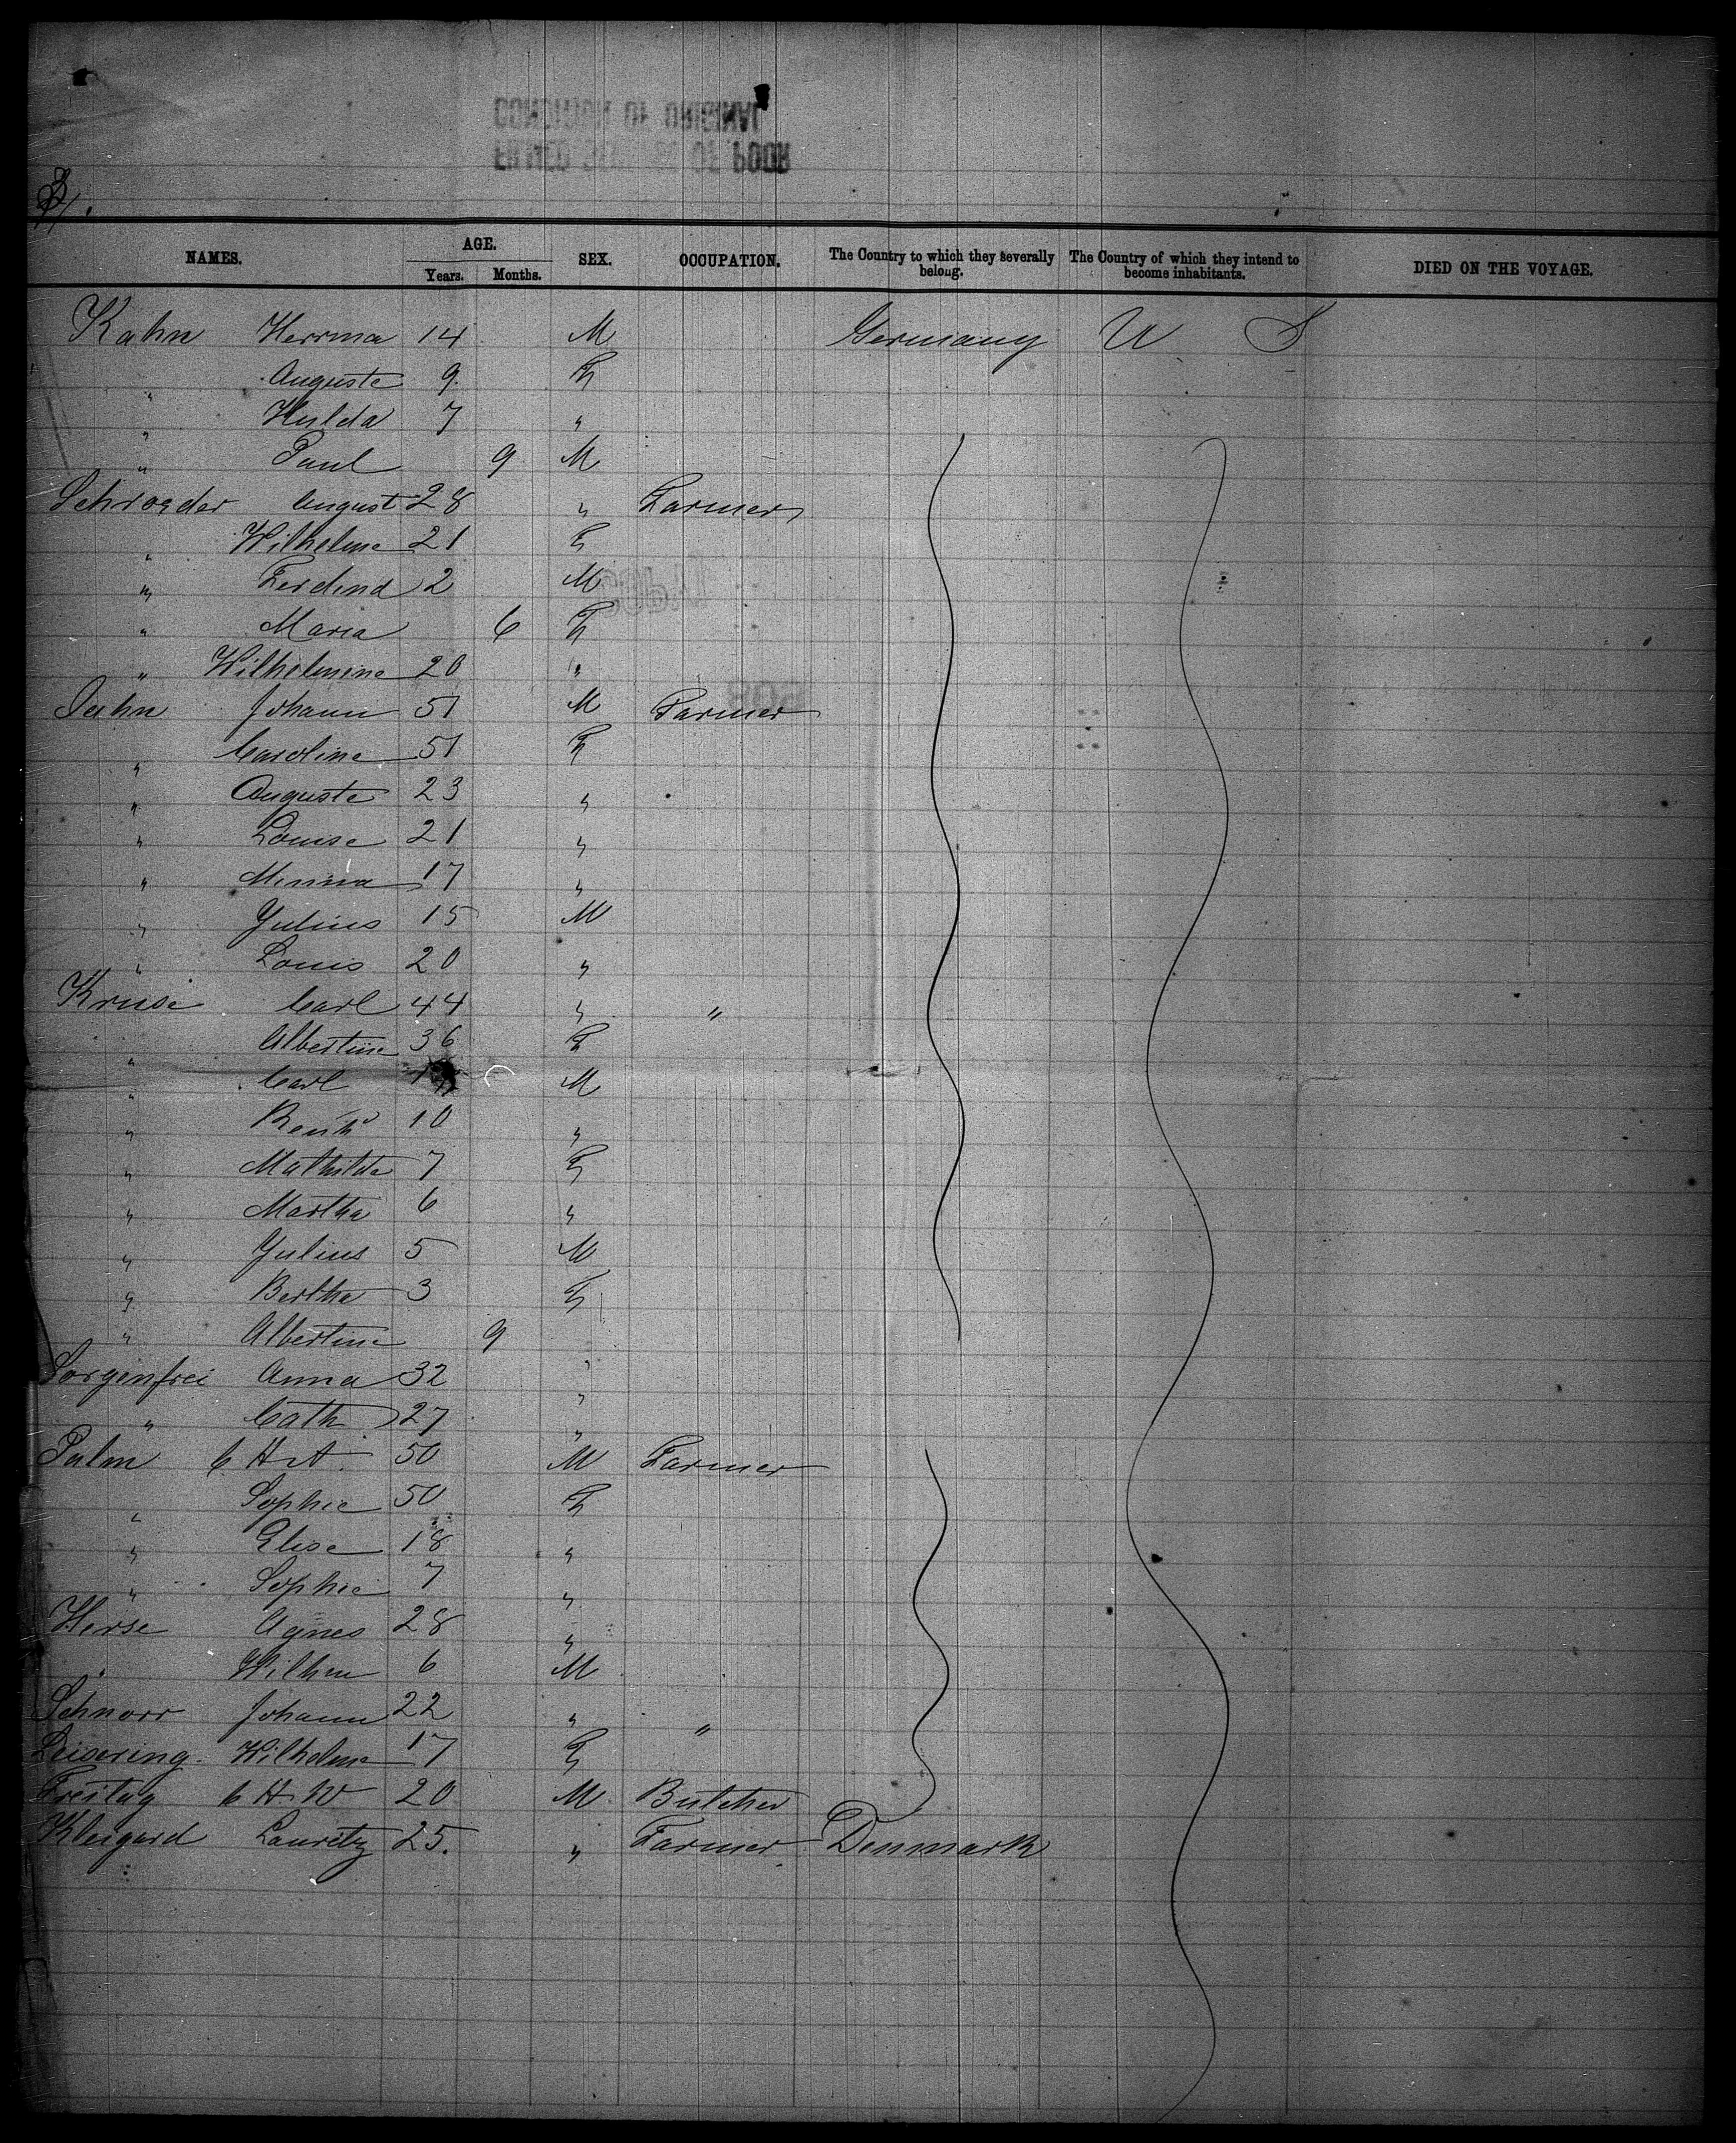 NAMES. AGE. SEX. OCCUPATION. The Country to which they severally belong. The Country of which they intend to become inhabitants. DIED ON THE VOYAGE.
Years. Months.
Kahn Herrma 14 M Germany U S
" Auguste 9 F
" Hulda 7 "
" Paul 9 M
Schroeder August 28 " Farmer
" Wilhelme 21 F
" Ferdind 2 M
" Maria 6 F
" Wilhelmine 20 "
Jahn Johann 51 M Farmer
" Caroline 51 F
" Auguste 23 "
" Louise 21 "
" Minna 17 "
" Julius 15 M
" Louis 20 "
Kruse Carl 44 " "
" Albertine 36 F
" Carl M
" 10 "
" Mathilde 7 F
" Martha 6 "
" Julius 5 M
" Bertha 3 F
" Albertine 9 "
Sorgenfrei Anna 32 "
" Cath 27 "
Palm C. H A. 50 M Farmer
" Sophie 50 F
" Elise 18 "
" Sophie 7 "
Herse Agnes 28 "
" Wilhm 6 M
Schnorr Johann 22 " "
Leisering Wilhelme 17 F
Freitag C H W 20 M Butcher
Kleigard Lauritz 25. " Farmer Denmark